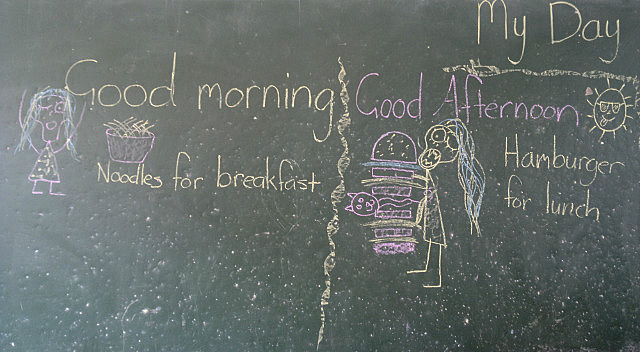 My Day
Good morning
Noodles for breakfast
Good Afternoon
Hamburger
for lunch